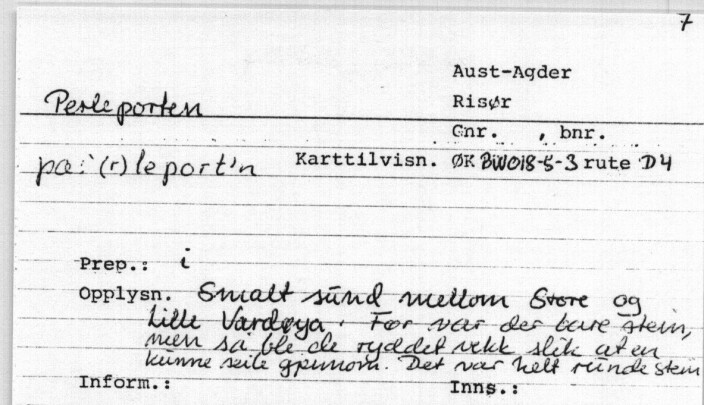 7
Aust-Agder
Perleporten Risør
Gnr. , bnr.
pæ:`(r)leport'n Karttilvisn. ØK BW018-5-3 rute D4
Prep.: i
Opplysn. Smalt sund mellom Store og
Lille Vardøya. Før var der bare stein,
men så ble de ryddet vekk slik at en
kunne seile gjennom. Det var helt runde stein
Inform.: Inns.: